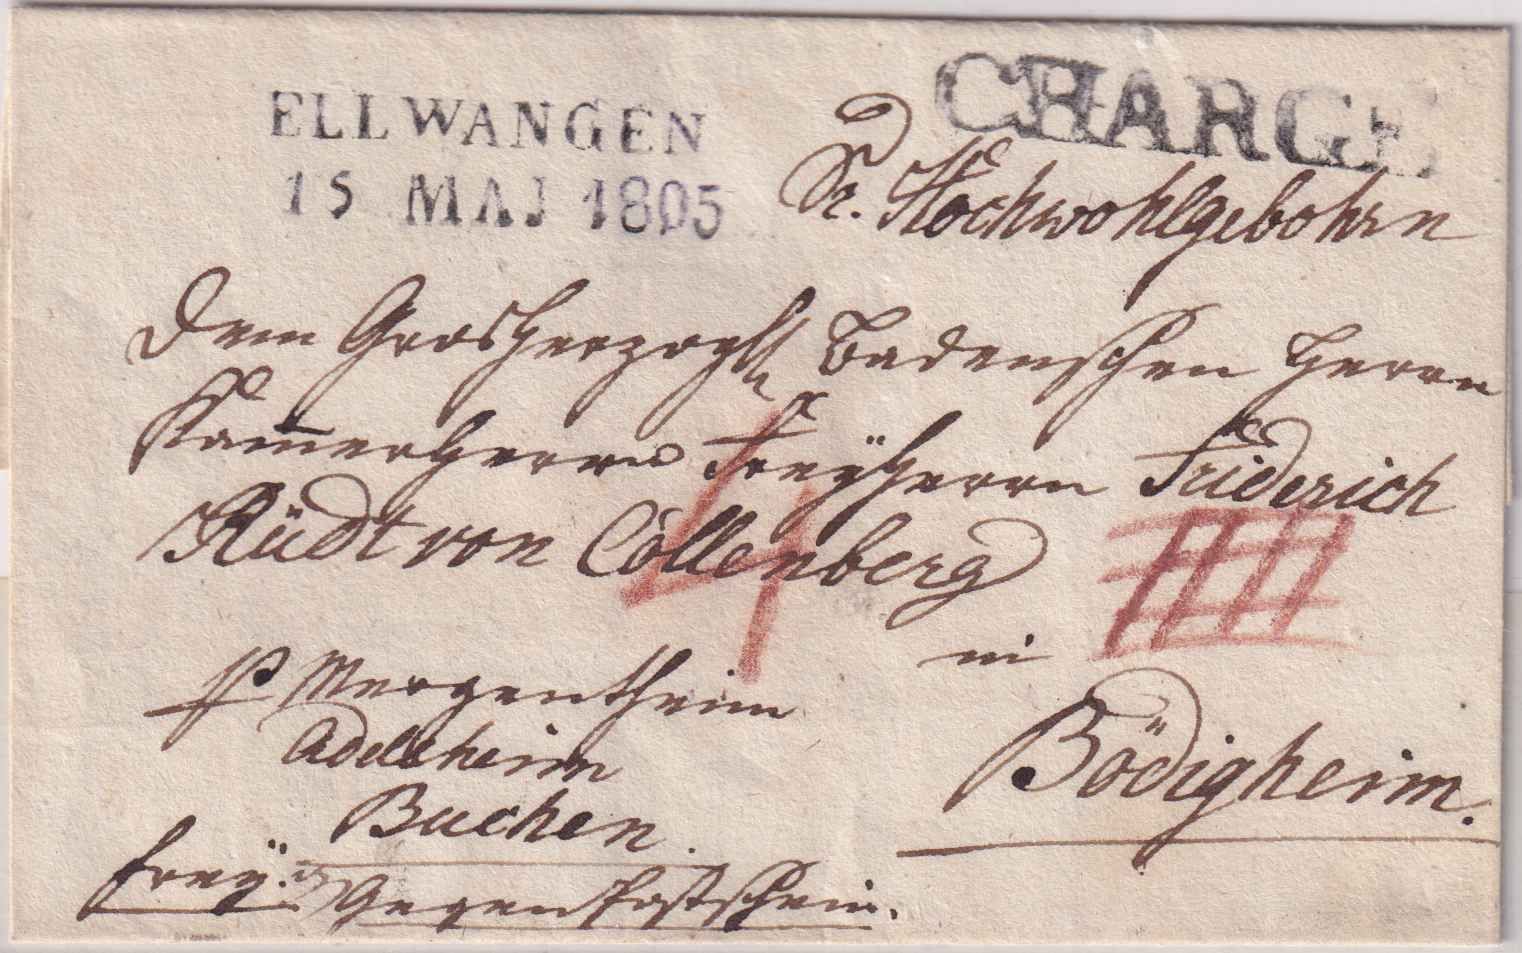 ELLWANGEN
15 MAI 1805
CHARGE.
Sr. Hochwohlgebohrn
Dem Grosherzogll. Badenschen Herrn
Kam̄erherrn Freÿherrn Friderich
Rüdt von Collenberg
4
in
Bödigheim.
p Mergentheim
Adelsheim
Buchen.
freÿ.
gegen Postschein.